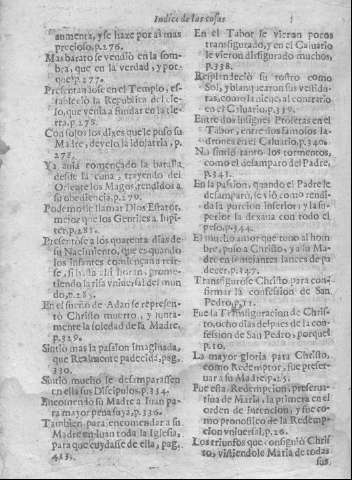 Indice de las cosas
aumenta, y se haze por al mas
precioso, p. 276.
Mas barato se vendiò en la som-
bra, que en la verdad, y por-
què? p. 277.
Presentandose en el Templo, es-
tableciò la Republica del cie-
lo, que venia a fundar en la tie-
rra. p. 278.
Con solos los dixes que le puso su
Madre, develò la idolatria, p.
Ya avia començado la batalla
desde la cuna, trayendo del
Oriente los Magos, rendidos a
su obediencia, p. 279.
Podemosle llamar Dios Estator,
mejor que los Gentiles a Jupi-
ter. p. 281.
Presentòse a los quarenta dias de
su Nacimiento, que es quando
los Infantes comiençan a reir-
se, prome-
tiendo la risa vniversal del mun-
do, p. 285.
En el sueño de Adan se represen-
tò Christo muerto, y junta-
mente la soledad de la Madre,
p. 329.
Sintiò mas la passion imaginada,
que Realmente padecida, pag.
330.
Sintiò mucho se desamparassen
en ella sus Discipulos. p. 334.
Encomendò su Madre a Juan pa-
ra mayor pena suya, p. 336.
Tambien para encomendar a su
Madre en Juan toda la Iglesia,
para que cuydasse de ella, pag.
En el Tabor se vieran pocos
transfigurado, y en el Calvario
le vieron disfigurado muchos,
p. 338.
Resplandeciò su rostro como
Sol, y blanquearon sus vestidu-
ras, como la nieve al contrario
en el Calvario, p. 339.
Entre dos insignes Profetas en el
Tabor, entre dos famosos la-
drones en el Calvario, p. 340.
No sintiò tanto los tormentos,
como el desamparo del Padre,
p. 343.
En la passion, quando el Padre le
desamparò, se viò como rendi-
da la porcion inferior, y la su-
perior la dexava con todo el
peso, p. 344.
El mucho amor que tono al hom-
bre, puso a Christo, y a su Ma-
dre en semejantes lances de pa-
decer, p. 347.
Transfiguròse Christo para con-
firmar la confession de San
Pedro, p.
Fue la Transfiguracion de Chris-
to, ocho dias despues de la con-
fession de San Pedro, porquè?
p. 10.
La mayor gloria para Christo,
como Redemptor, fue preser-
var a su Madre, p. 25.
Fue esta Redempcion, preserva-
tiva de Maria, la primera en el
orden de intencion, y fue co-
mo pronostico de la Redemp-
cion vniversal, p. 26.
Los triunfos que consiguiò Chris-
to, vistiendole Maria de todas
sus